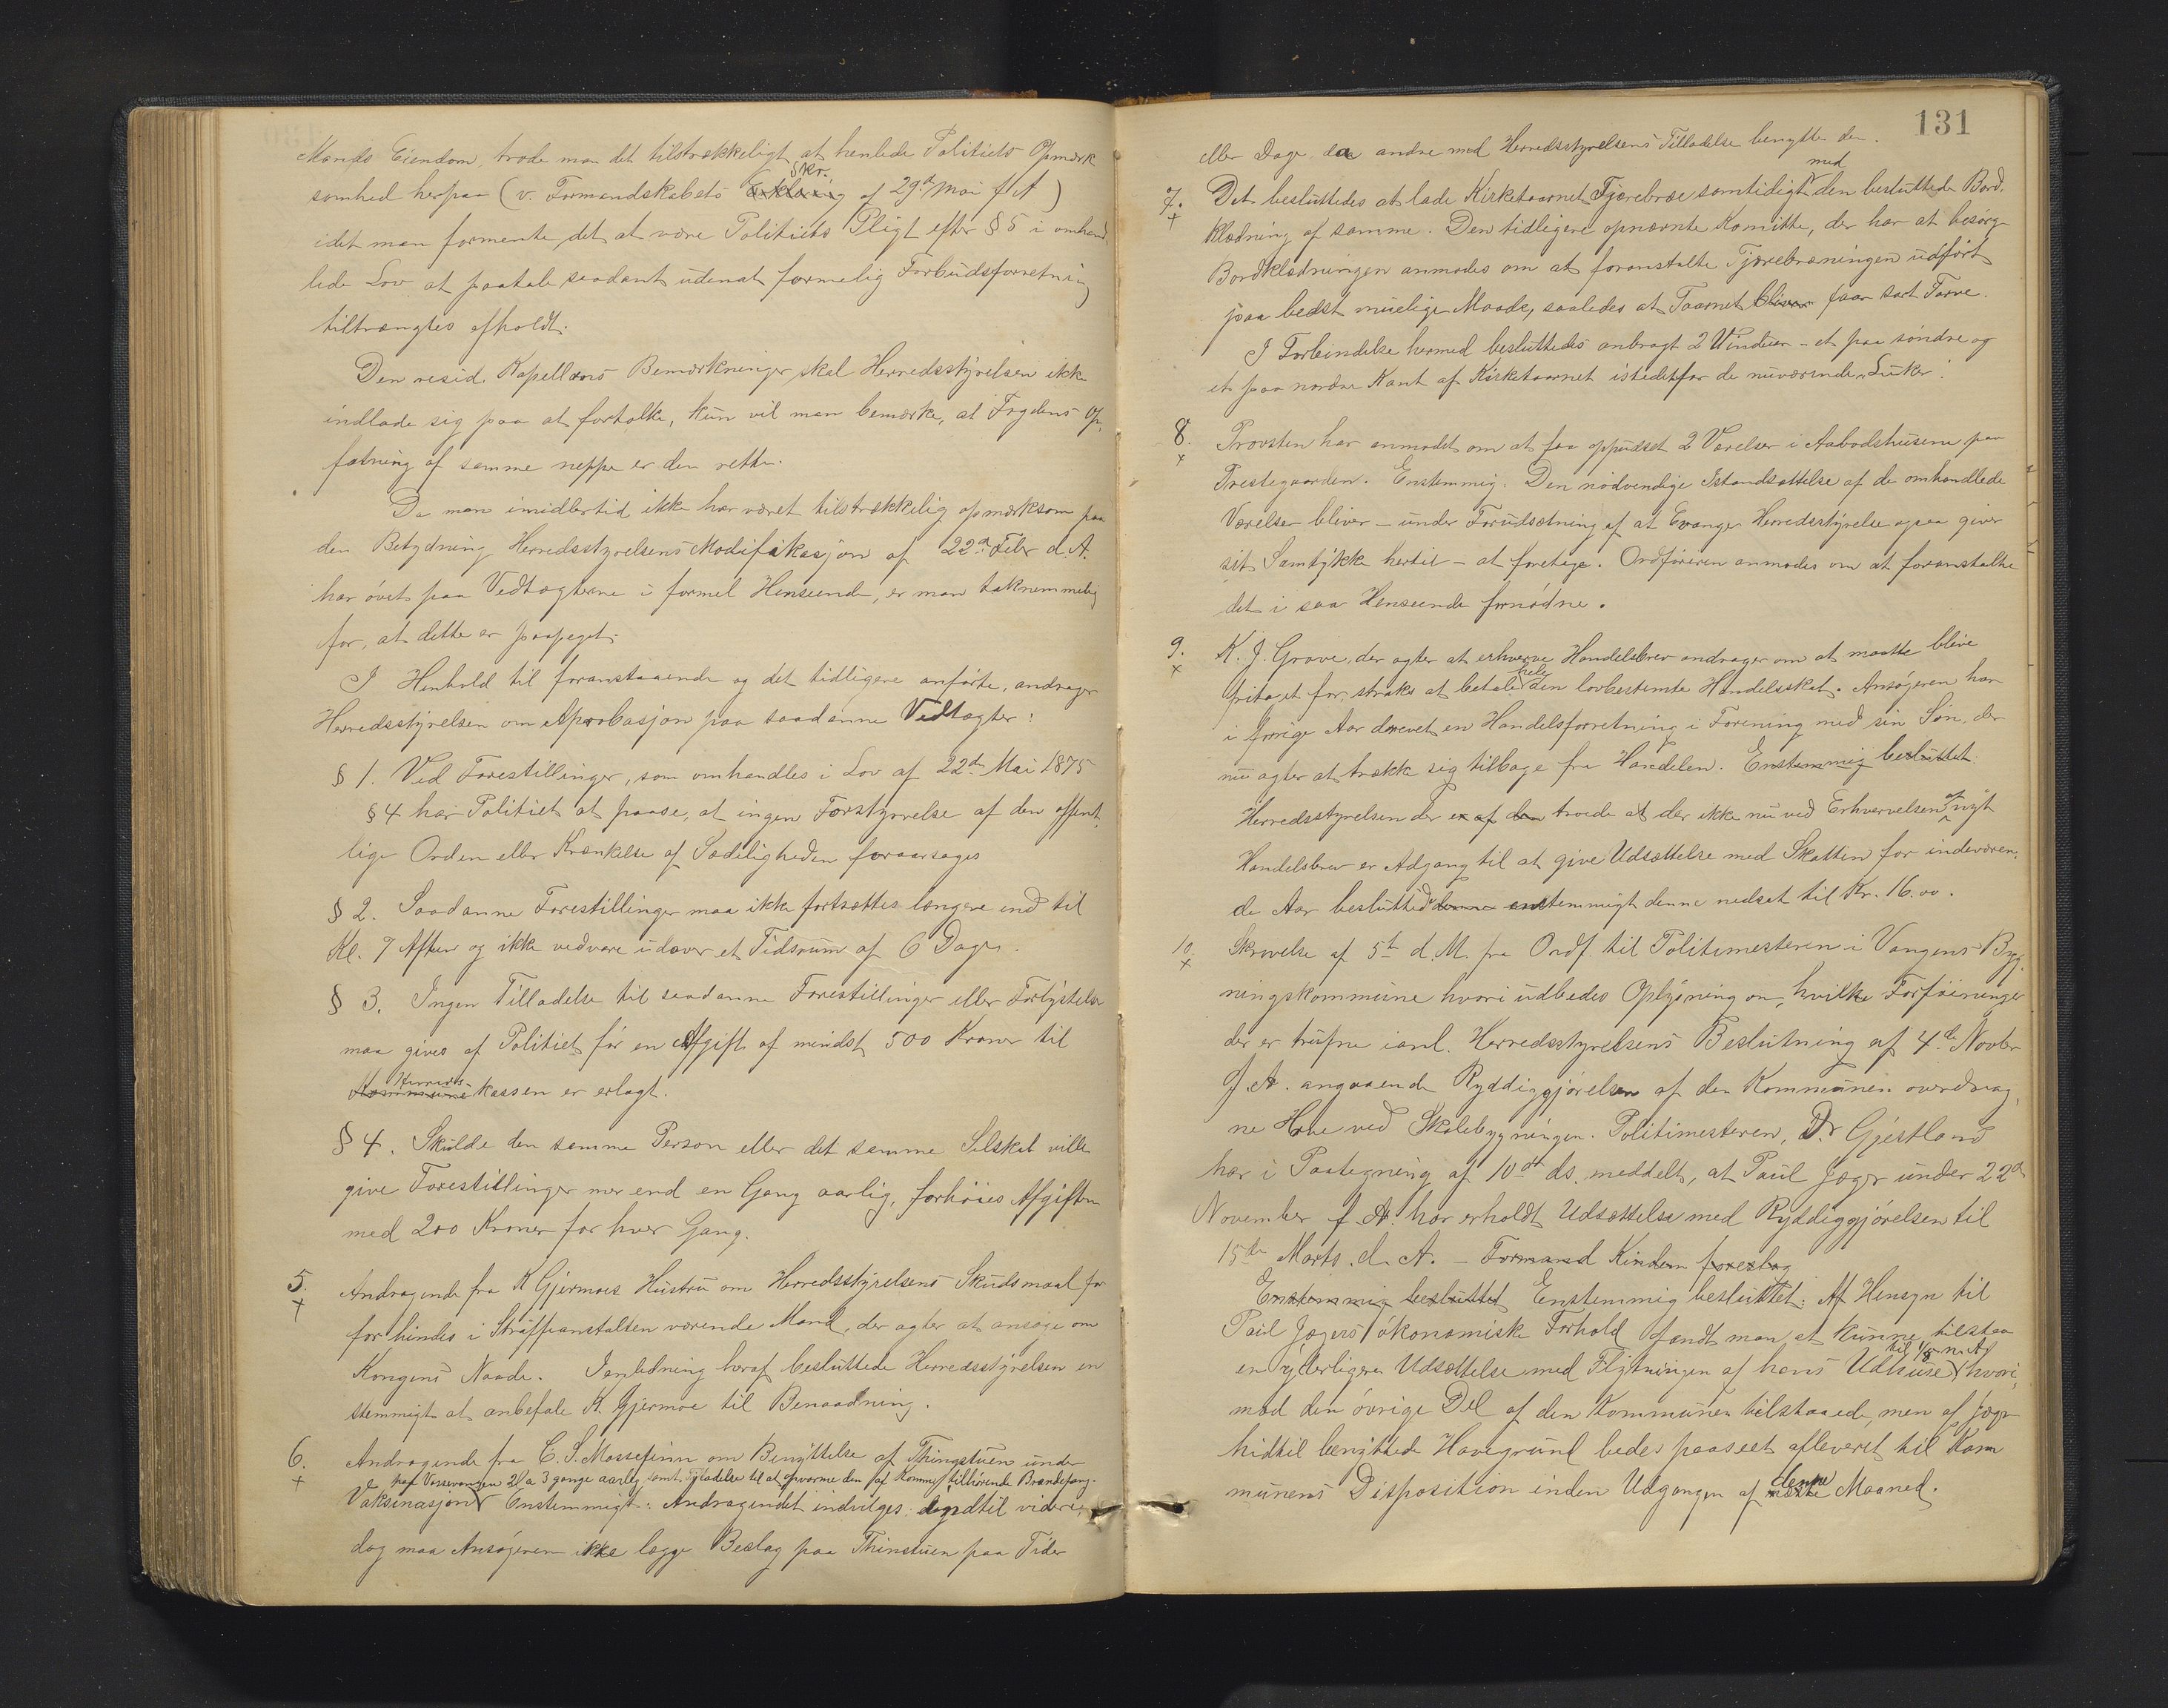 Mands Eiendom, trode man det tilstrækkeligt at henlede Politiets Opmærk
somhed herpaa (v. Formandskabets Skr. af 29d Mai f A)
idet man formente, det at være Politiets Pligt efter § 5 i omhand,
lede Lov at paatale saadant udenat formelig Forbudsforretning
tiltrængtes afholdt.
Den resid. Kapellans Bemærkninger skal Herredsstyrelsen ikke
indlade sig paa at fortolke, kun vil man bemærke, at Fogdens Op,
fatning af samme neppe er den rette.
Da man imidlertid ikke har været tilstrækkelig opmærksom paa
den Betydning Herredsstyrelsens Modifikasjon af 22d Febr d. A.
har óvet paa Vedtægterne i formel Henseende, er man taknemmelig
for, at dette er paapeget.
I Henhold til foranstaaende og det tidligere anførte, andrager
Herredsstyrelsen om Aprobasjon paa saadanne Vedtægter:
§ 1. Ved Forestillinger, som omhandles i Lov af 22de Mai 1875
§ 4 har Politiet at paase, at ingen Forstyrrelse af den offent,
lige Orden eller Krænkelse af Sædeligheden foraarsages
§ 2. Saadanne Forestillinger maa ikke fortsættes længere end til
Kl. 7 Aften og ikke vedvare udover et Tidsrum af 6 Dage.
§ 3. Ingen Tilladelse til saadanne Forestillinger eller Forlystelser
maa gives af Politiet før en Afgift af mindst 500 Kroner til
Kommune Herreds-kassen er erlagt.
§ 4. Skulde den samme Person eller det samme Selskab ville
give Forestillinger mer end en Gang aarlig, forhóies Afgiften
med 200 Kroner for hver Gang.
5. Andragende fra K Gjermoes Hustru om Herredsstyrelsens Skudsmaal for
+ for hindes i Straffeanstalten værende Mand, der agter at ansøge om
Kongens Naade. I anledning heraf besluttede Herredsstyrelsen en
stemmigt at anbefale K. Gjermoe til Benaadning.
6. Andragende fra C. S. Mossefinn om Benyttelse af Thingstuen under
paf Vossevangen 2 a 3 gange aarlig samt Tilladelse til at opvarme den af Kommunen tilhørende Brændefang.
+ Vaksinasjon Enstemmigt: Andragendet indvilges indtil videre,
dog maa Ansøgeren ikke lægge Beslag paa Thinstuen paa Tider
131
eller Dage da andre med Herredsstyrelsens Tilladelse benytter den.
7. Det besluttedes at lade Kirketaarnet Tjærebræe samtidigt med den besluttede Bord,
+ klædning af samme. Den tidligere opnævnte Komitte, der har at besørge
Bordklædningen anmodes om at foranstalte Tjærebræningen udført
paa bedst muelige Maade, saaledes at Taarnet bliver faar sort Farve.
I Forbindelse hermed besluttedes anbragt 2 Vinduer - et paa søndre og
et paa nordre Kant af Kirketaarnet istedetfor de nuværende Luker.
8. Provsten har anmodet om at faa oppudset 2 Værelser i Aabodshusene paa
+ Prestegaarden. Enstemmig: Den nødvendige Istandsættelse af de omhandlede
Værelser bliver - under Forudsætning af at Evanger Herredsstyrelse ogsaa giver
sit Samtykke hertil - at foretage. Ordføreren anmodes om at foranstalte
det i saa Henseende fornødne.
9. K. J. Grove, der agter at erhverve Handelsbrev andrager om at maatte blive
+ fritaget for straks at betale hele den lovbestemte Handelsskat. Ansøgeren har
i forrige Aar drevet en Handelsforretning i Forening med sin Søn, der
nu agter at trække sig tilbage fra Handelen. Enstemmig besluttet.
Herredsstyrelsen der er af den troede at der ikke nu ved Erhvervelsen af nyt
Handelsbrev er Adgang til at give Udsættelse med Skatten for indeværen,
de Aar besluttede denne enstemmigt denne nedsat til Kr. 16.00.
10. Skrivelse af 5te d. M. fra Ordf. til Politimesteren i Vangens Byg,
+ ningskommune hvori udbedes Oplysning om, hvilke Forføininger
der er trufne ianl. Herredsstyrelsens Beslutning af 4de Novbr
f. A. angaaende Ryddiggjørelsen af den Kommunen overdrag,
ne Have ved Skolebygningen. Politimesteren, Dr Gjestland
har i Paategning af 10de ds. meddelt, at Paul Jæger under 22d
November f. A. har erholdt Udsættelse med Ryddiggjørelsen til
15de Marts d. A. - Formand Kindem foreslog
Enstemmig besluttet Enstemmig besluttet: Af Hensyn til
Paul Jægers økonomiske Forhold fandt man at kunne tilstaa
en yderligere Udsættelse med Flytningen af hans Udhuse til 1/8 n. A, hvori,
mod den óvrige Del af den Kommunen tilstaaede, men af Jæger
hidtil benyttede Havegrund bedes paaseet afleveret til Kom
munens Disposition inden Udgangen af næste denne Maaned.